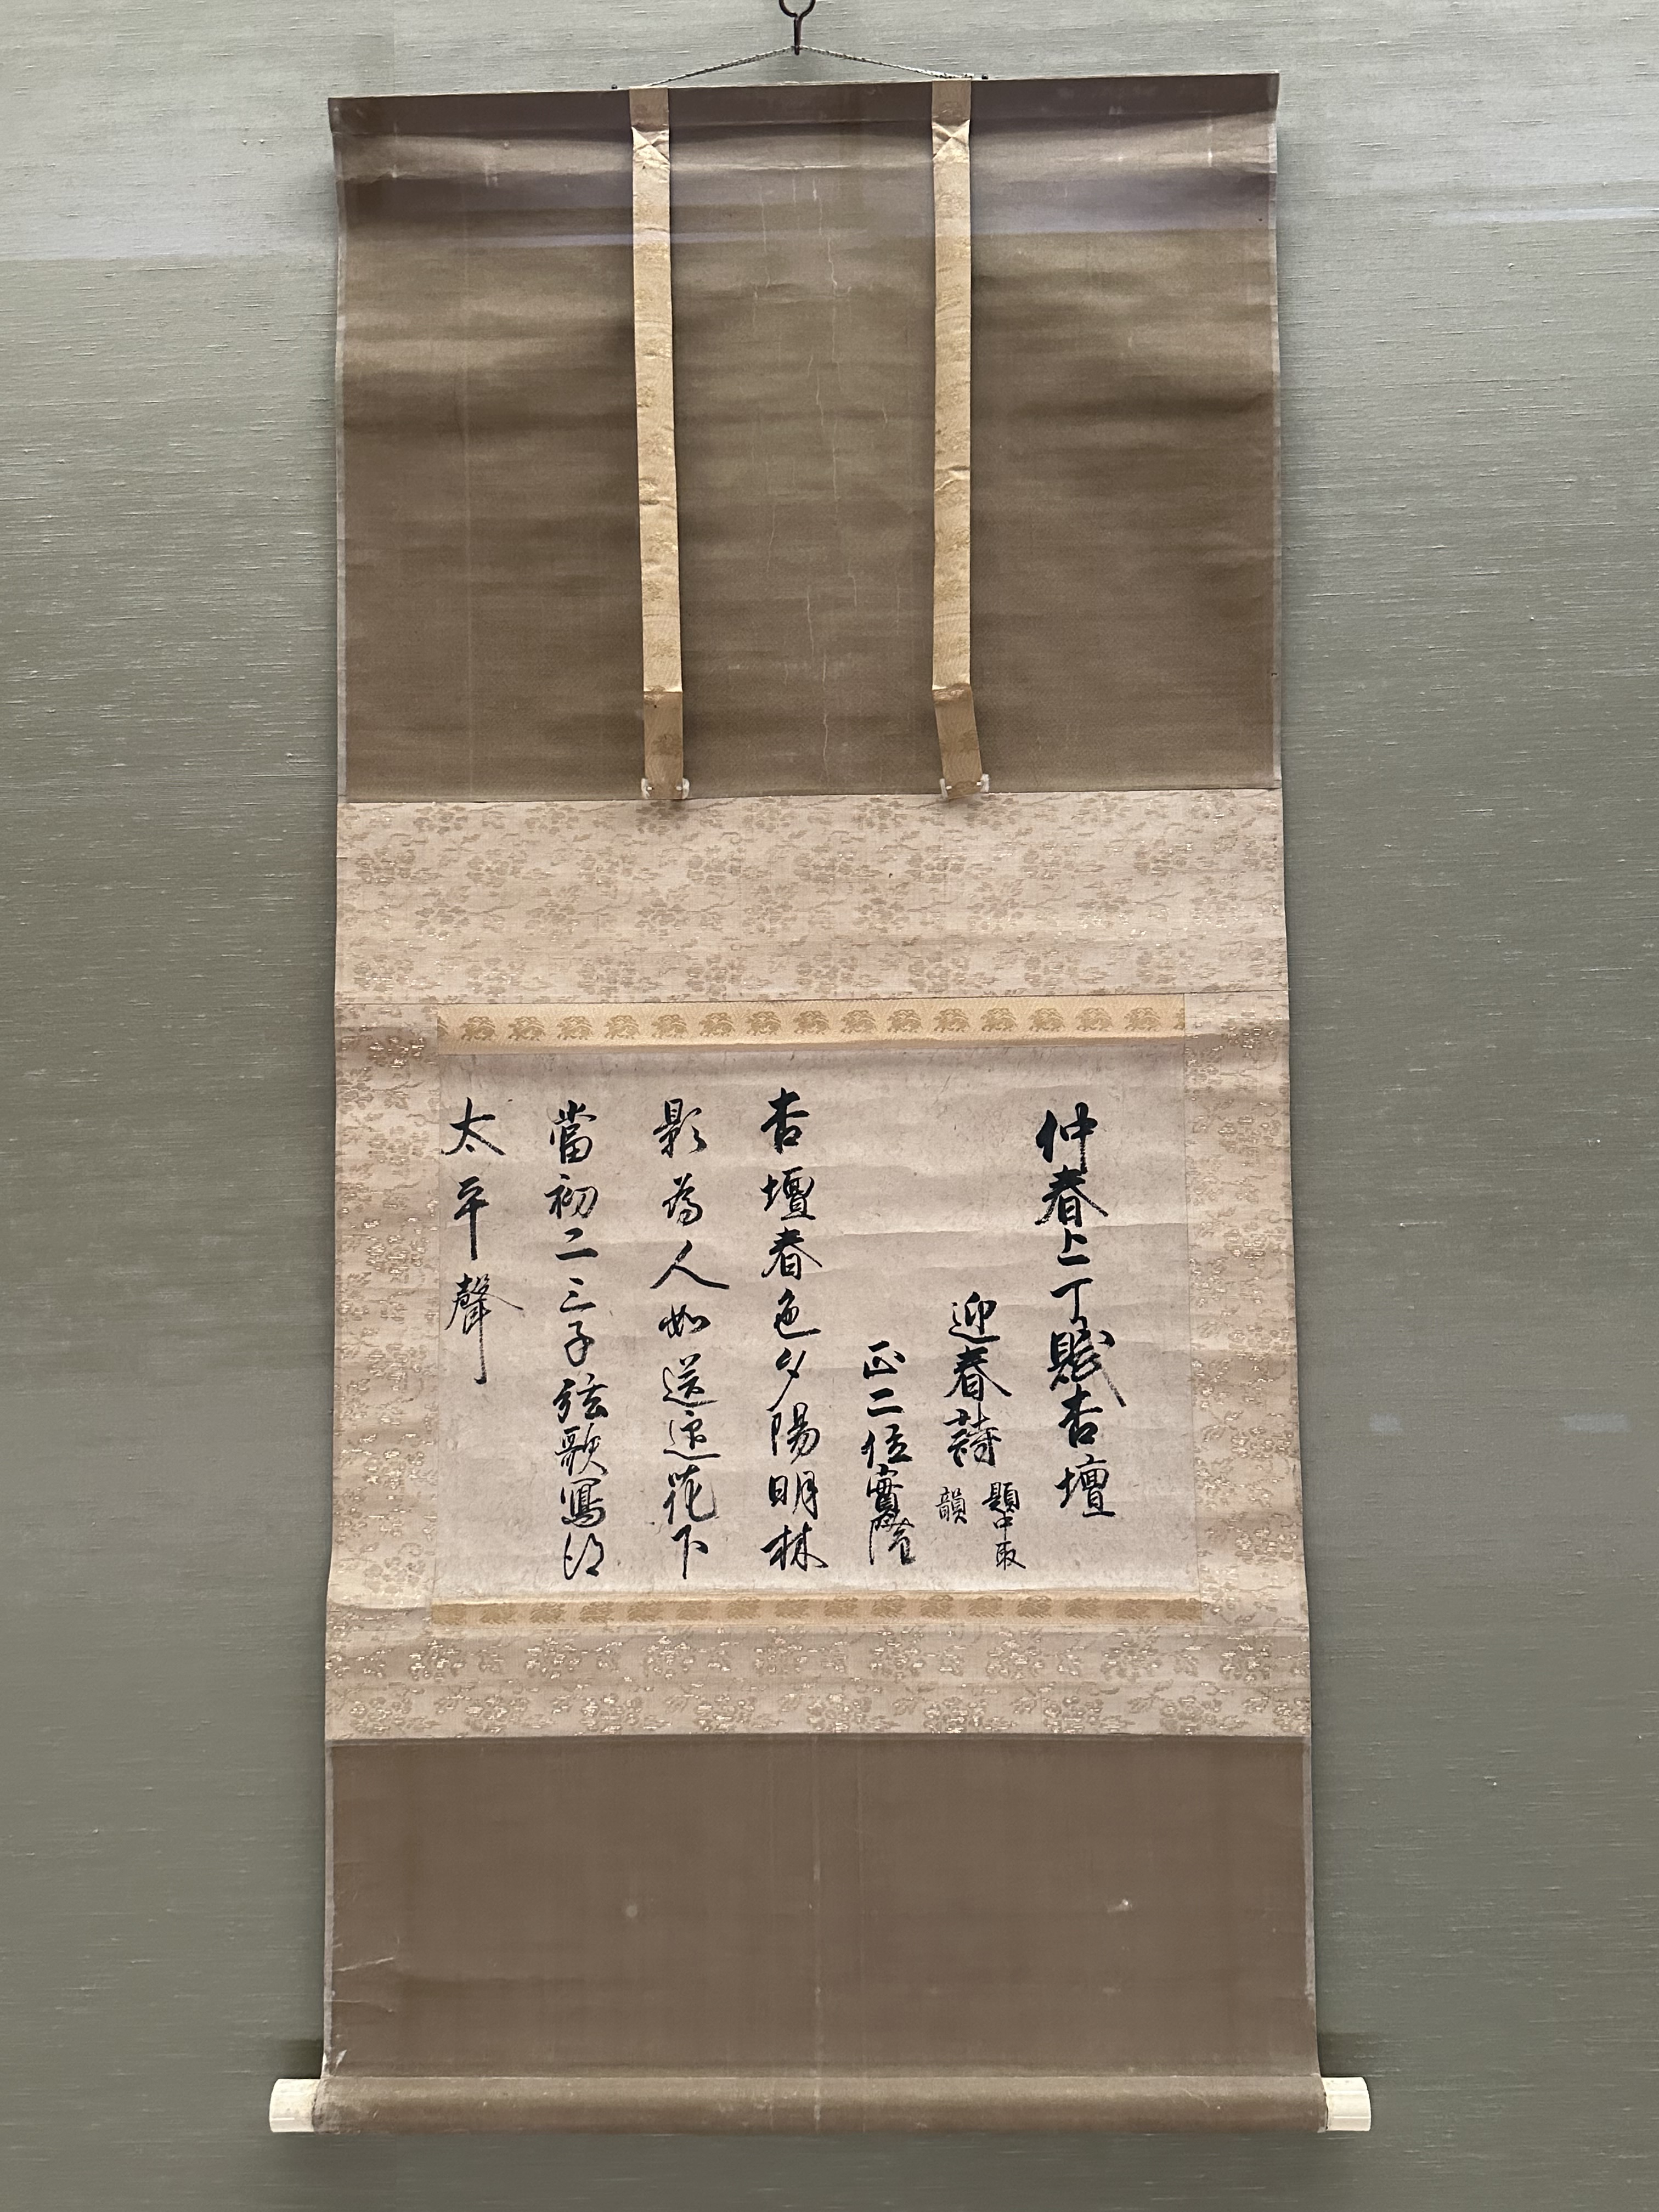 仲春上丁賦杏壇
迎春詩 題中取
韻
正二位實隆
杏壇春色夕陽明林
影為人如送迎花下
當初二三子弦歌寫得
太平聲